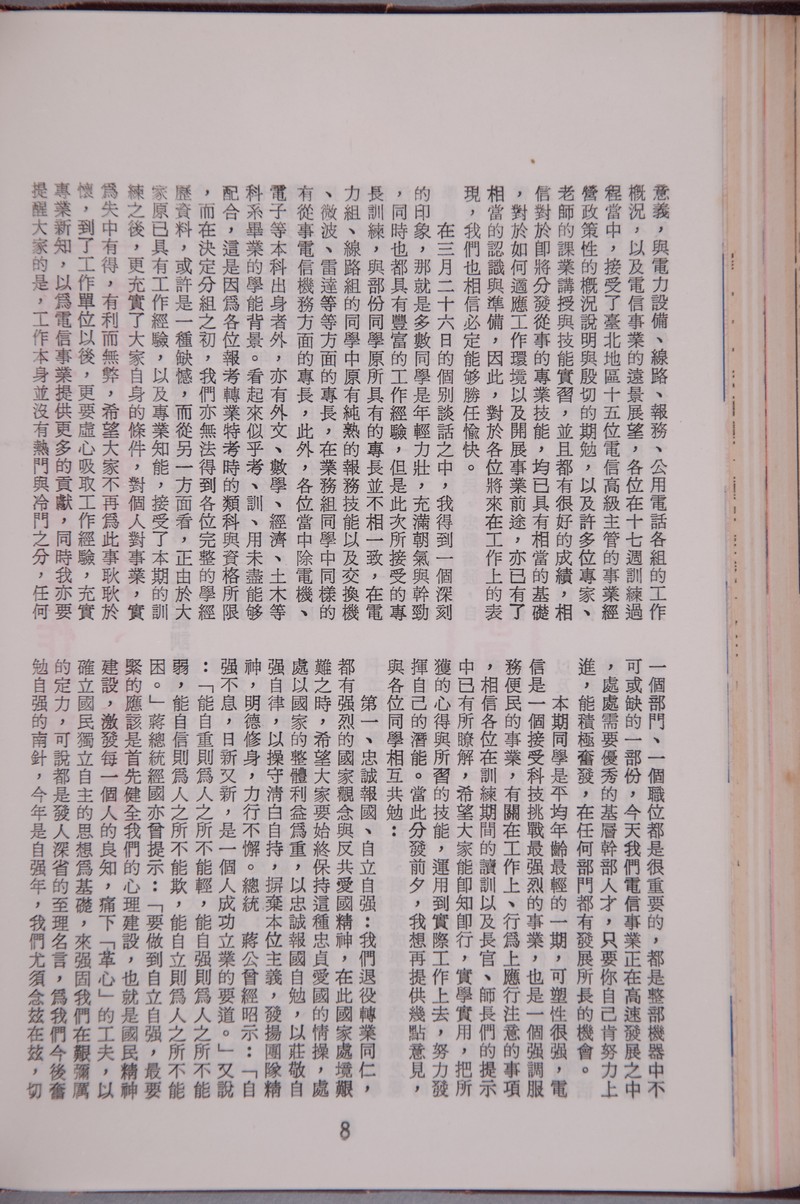 意義，與電力設備、線路、報務、公用電話各組的工作
概況，以及電信事業的遠景展望，各位在十七週訓練過
程當中，接受了臺北地區十五位電信高級主管的事業經
營政策性的概況說明與殷切的期勉，以及許多位專家、
老師的課業講授與技能實習，並且都有很好的成績，相
信對於即將分發從事的專業技能，均已具有相當的基礎
，對於如何適應工作環境以及開展事業前途，亦已有了
相當的認識與準備，因此，對於各位將來在工作上的表
現，我們也相信必定能够勝任愉快。
在三月二十六日的個別談話之中，我得到一個深刻
的印象，那就是多數同學是年輕力壯，充滿朝氣與幹勁
，同時也都具有豐富的工作經驗，但是此次所接受的專
長訓練，與部份同學原所具有的專長並不相一致，在電
力組、線路組的同學中原有純熟的報務技能以及交換機
、微波、雷達等等方面的專長，在業務組同學中同樣的
有從事電信機務方面的專長，此外，各位當中除電機、
電子等本科出身者外，亦有外文、數學、經濟、土木等
科系畢業的學能背景。看起來似乎考、訓、用未盡能够
配合，這是因爲各位報考轉業特考時的類科與資格所限
，而在決定分組之初，我們亦無法得到各位完整的學經
歷資料，或許是一種缺憾，而從另一方面看，正由於大
家原已具有工作經驗，以及專業知能，接受了本期的訓
練之後，更充實了大家自身的條件，對個人對事業，實
爲失中有得，有利而無弊，希望大家不再爲此事耿耿於
懷，到了工作單位以後，更要虛心吸取工作經驗，充實
專業新知，以爲電信事業提供更多的貢獻，同時我亦要
提醒大家的是，工作本身並沒有熱門與冷門之分，任何
一個部門、一個職位都是很重要的，都是整部機器中不
可或缺的一部份，今天我們電信事業正在高速發展之中
，處處需要優秀的基層幹部人才，只要你自己肯努力上
進，能積極奮發，在任何部門都有發展所長的機會。
本期同學是平均年齡最輕的一期，可塑性很强，電
信是一個接受科技挑戰最强烈的事業，也是一個强調服
務便民的事業，有關在工作上、行爲上應行注意的事項
，相信各位在訓練期間的讀訓以及長官、師長們的提示
中已有所瞭解，希望大家能即知即行，實學實用，把所
獲的心得與所習的技能，運用到實際工作上去，努力發
揮自己的潛能。當此分發前夕，我想再提供幾點意見，
與各位同學相互共勉：
第一、忠誠報國、自立自强：我們退役轉業同仁，
都有强烈的國家觀念與反共愛國精神，在此國家處境艱
難之時，希望大家要始終保持這種忠貞愛國的情操，處
處以國家的整體利益爲重，以忠誠報國自勉，以莊敬自
强自律，以操守淸白自持，摒棄本位主義，發揚團隊精
神，明德修身，力行不懈。總統　蔣公曾經昭示：「自
强不息，日新又新，是一個人成功立業的要道。」又說
：「能自重則爲人之所不能輕，能自强則爲人之所不能
弱，能自信則爲人之所不能欺，能自立則爲人之所不能
困。」蔣總統經國亦曾提示：「要做到自立自强，最要
緊的應該是首先健全我們的心理建設，也就是國民精神
建設，激發每一個人的良知，痛下「革心」的工夫，以
確立國民獨立自主的思想爲基礎，來强固我們在艱彌厲
的定力，可說都是發人深省的至理名言，爲我們今後奮
勉自强的南針，今年是自强年，我們尤須念茲在茲，切
8